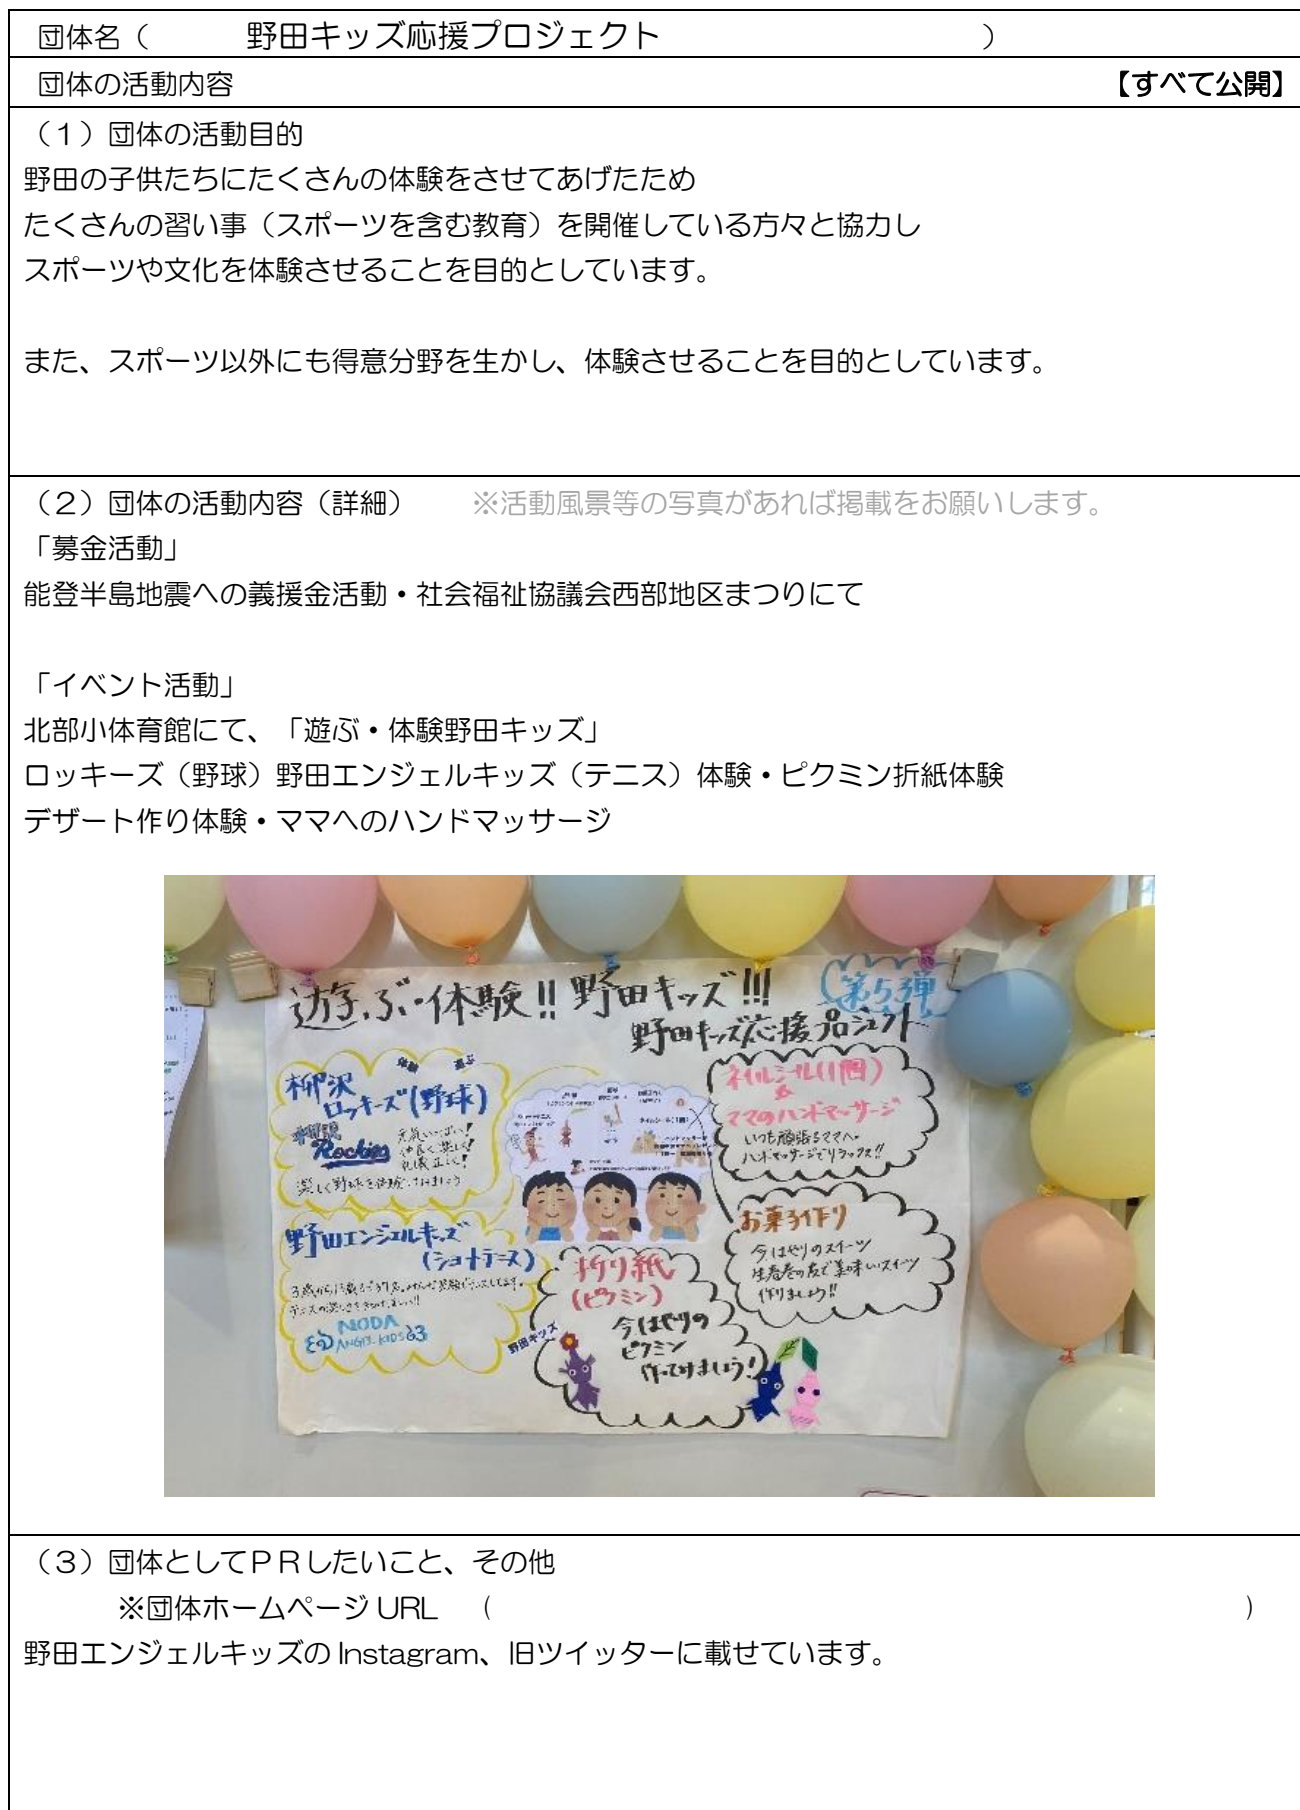 団体名（　野田キッズ応援プロジェクト　）
団体の活動内容　【すべて公開】
（１）団体の活動目的
野田の子供たちにたくさんの体験をさせてあげたため
たくさんの習い事（スポーツを含む教育）を開催している方々と協力し
スポーツや文化を体験させることを目的としています。
また、スポーツ以外にも得意分野を生かし、体験させることを目的としています。
（２）団体の活動内容（詳細）　※活動風景等の写真があれば掲載をお願いします。
「募金活動」
能登半島地震への義援金活動・社会福祉協議会西部地区まつりにて
「イベント活動」
北部小体育館にて、「遊ぶ・体験野田キッズ」
ロッキーズ（野球）野田エンジェルキッズ（テニス）体験・ピクミン折紙体験
デザート作り体験・ママへのハンドマッサージ
遊ぶ・体験!! 野田キッズ!!!
第5弾
野田キッズ応援プロジェクト
体験 遊ぶ
柳沢
ロッキーズ(野球)
柳沢
Rockies
元気いっぱい!
仲良く楽しく!
礼儀正しく!
楽しく野球を体験
野田エンジェルキッズ
(ショートテニス)
NODA
ANGEL KIDS
ネイルシール(1個)
&
ママのハンドマッサージ
いつも頑張るママへ
ハンドマッサージでリラックス!!
お菓子作り
今はやりのスイーツ
生春巻の皮で美味いスイーツ
作りましょう!!
折り紙
(ピクミン)
今はやりの
ピクミン
作ってみましょう!
野田キッズ
（３）団体としてＰＲしたいこと、その他
※団体ホームページ URL　（　）
野田エンジェルキッズの Instagram、旧ツイッターに載せています。